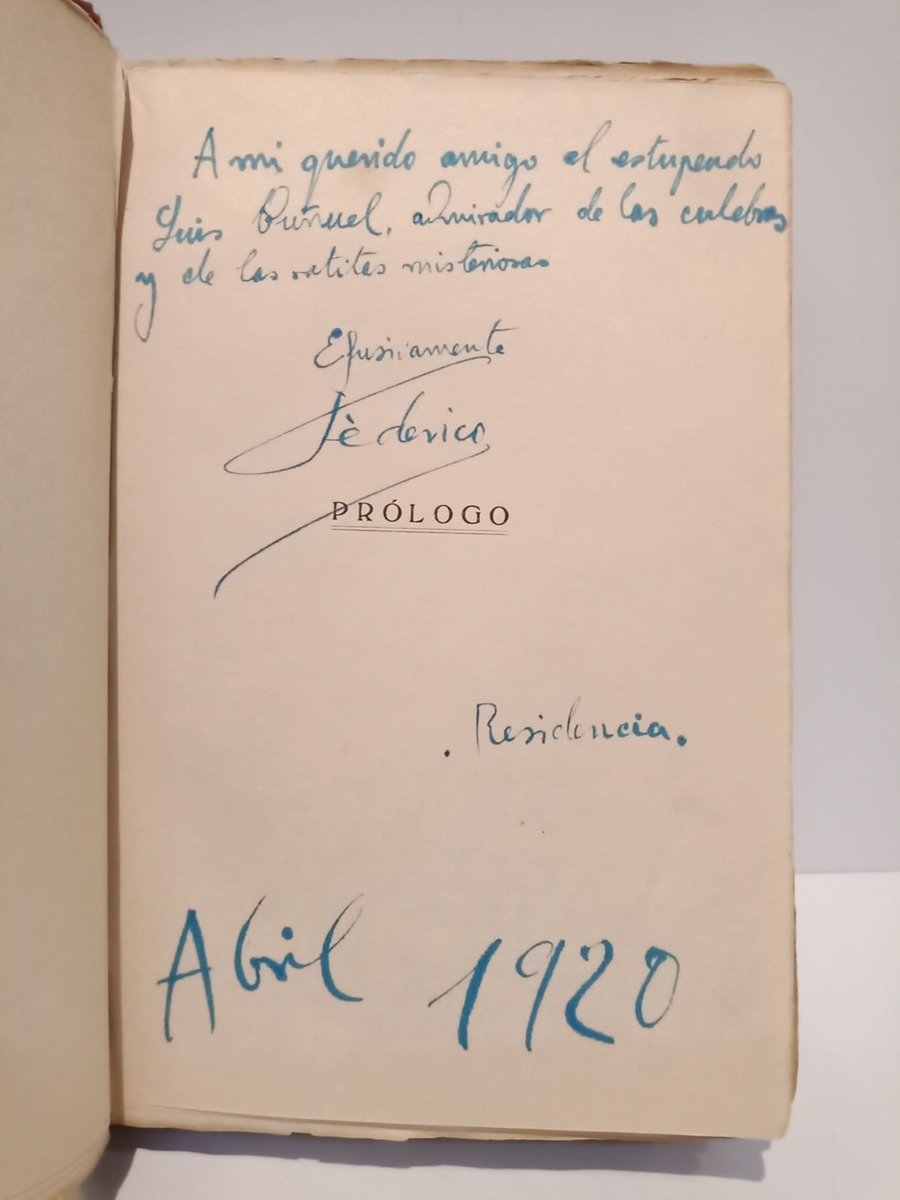 A mi querido amigo el estupendo
Luis Buñuel, admirador de las culebras
y de las ratitas misteriosas
Efusivamente
Fèderico
PRÓLOGO
. Residencia.
Abril 1920